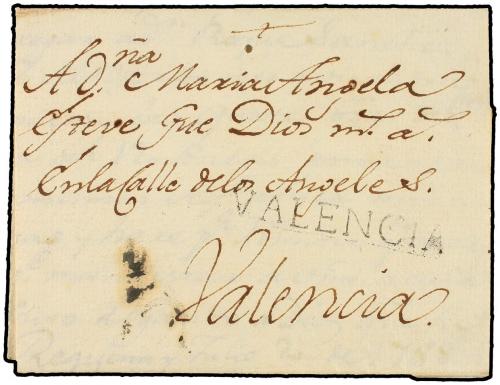 A d.ña Maria Angela
Esteve que Dios m.s a.s
En la Calle de los Angeles.
VALENCIA
Valencia.